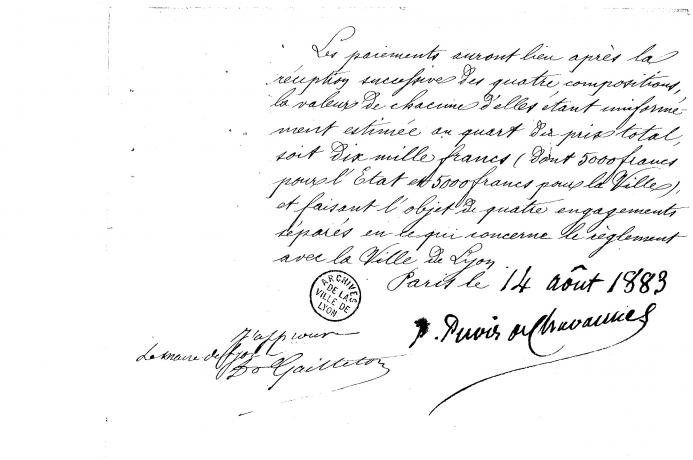 Les paiements auront lieu après la
réception successive des quatre compositions,
la valeur de chacune d'elles étant uniformé
ment estimée au quart du prix total,
soit dix mille francs (dont 5000 francs
pour l'Etat et 5000 francs pour la Ville),
et faisant l'objet de quatre engagements
séparés en ce qui concerne le règlement
avec la Ville de Lyon
Paris le 14 août 1883
P. Puvis de Chavannes
ARCHIVES
DE LA
VILLE DE
LYON
J'approuve
Le Maire de Lyon
Dr Gailleton